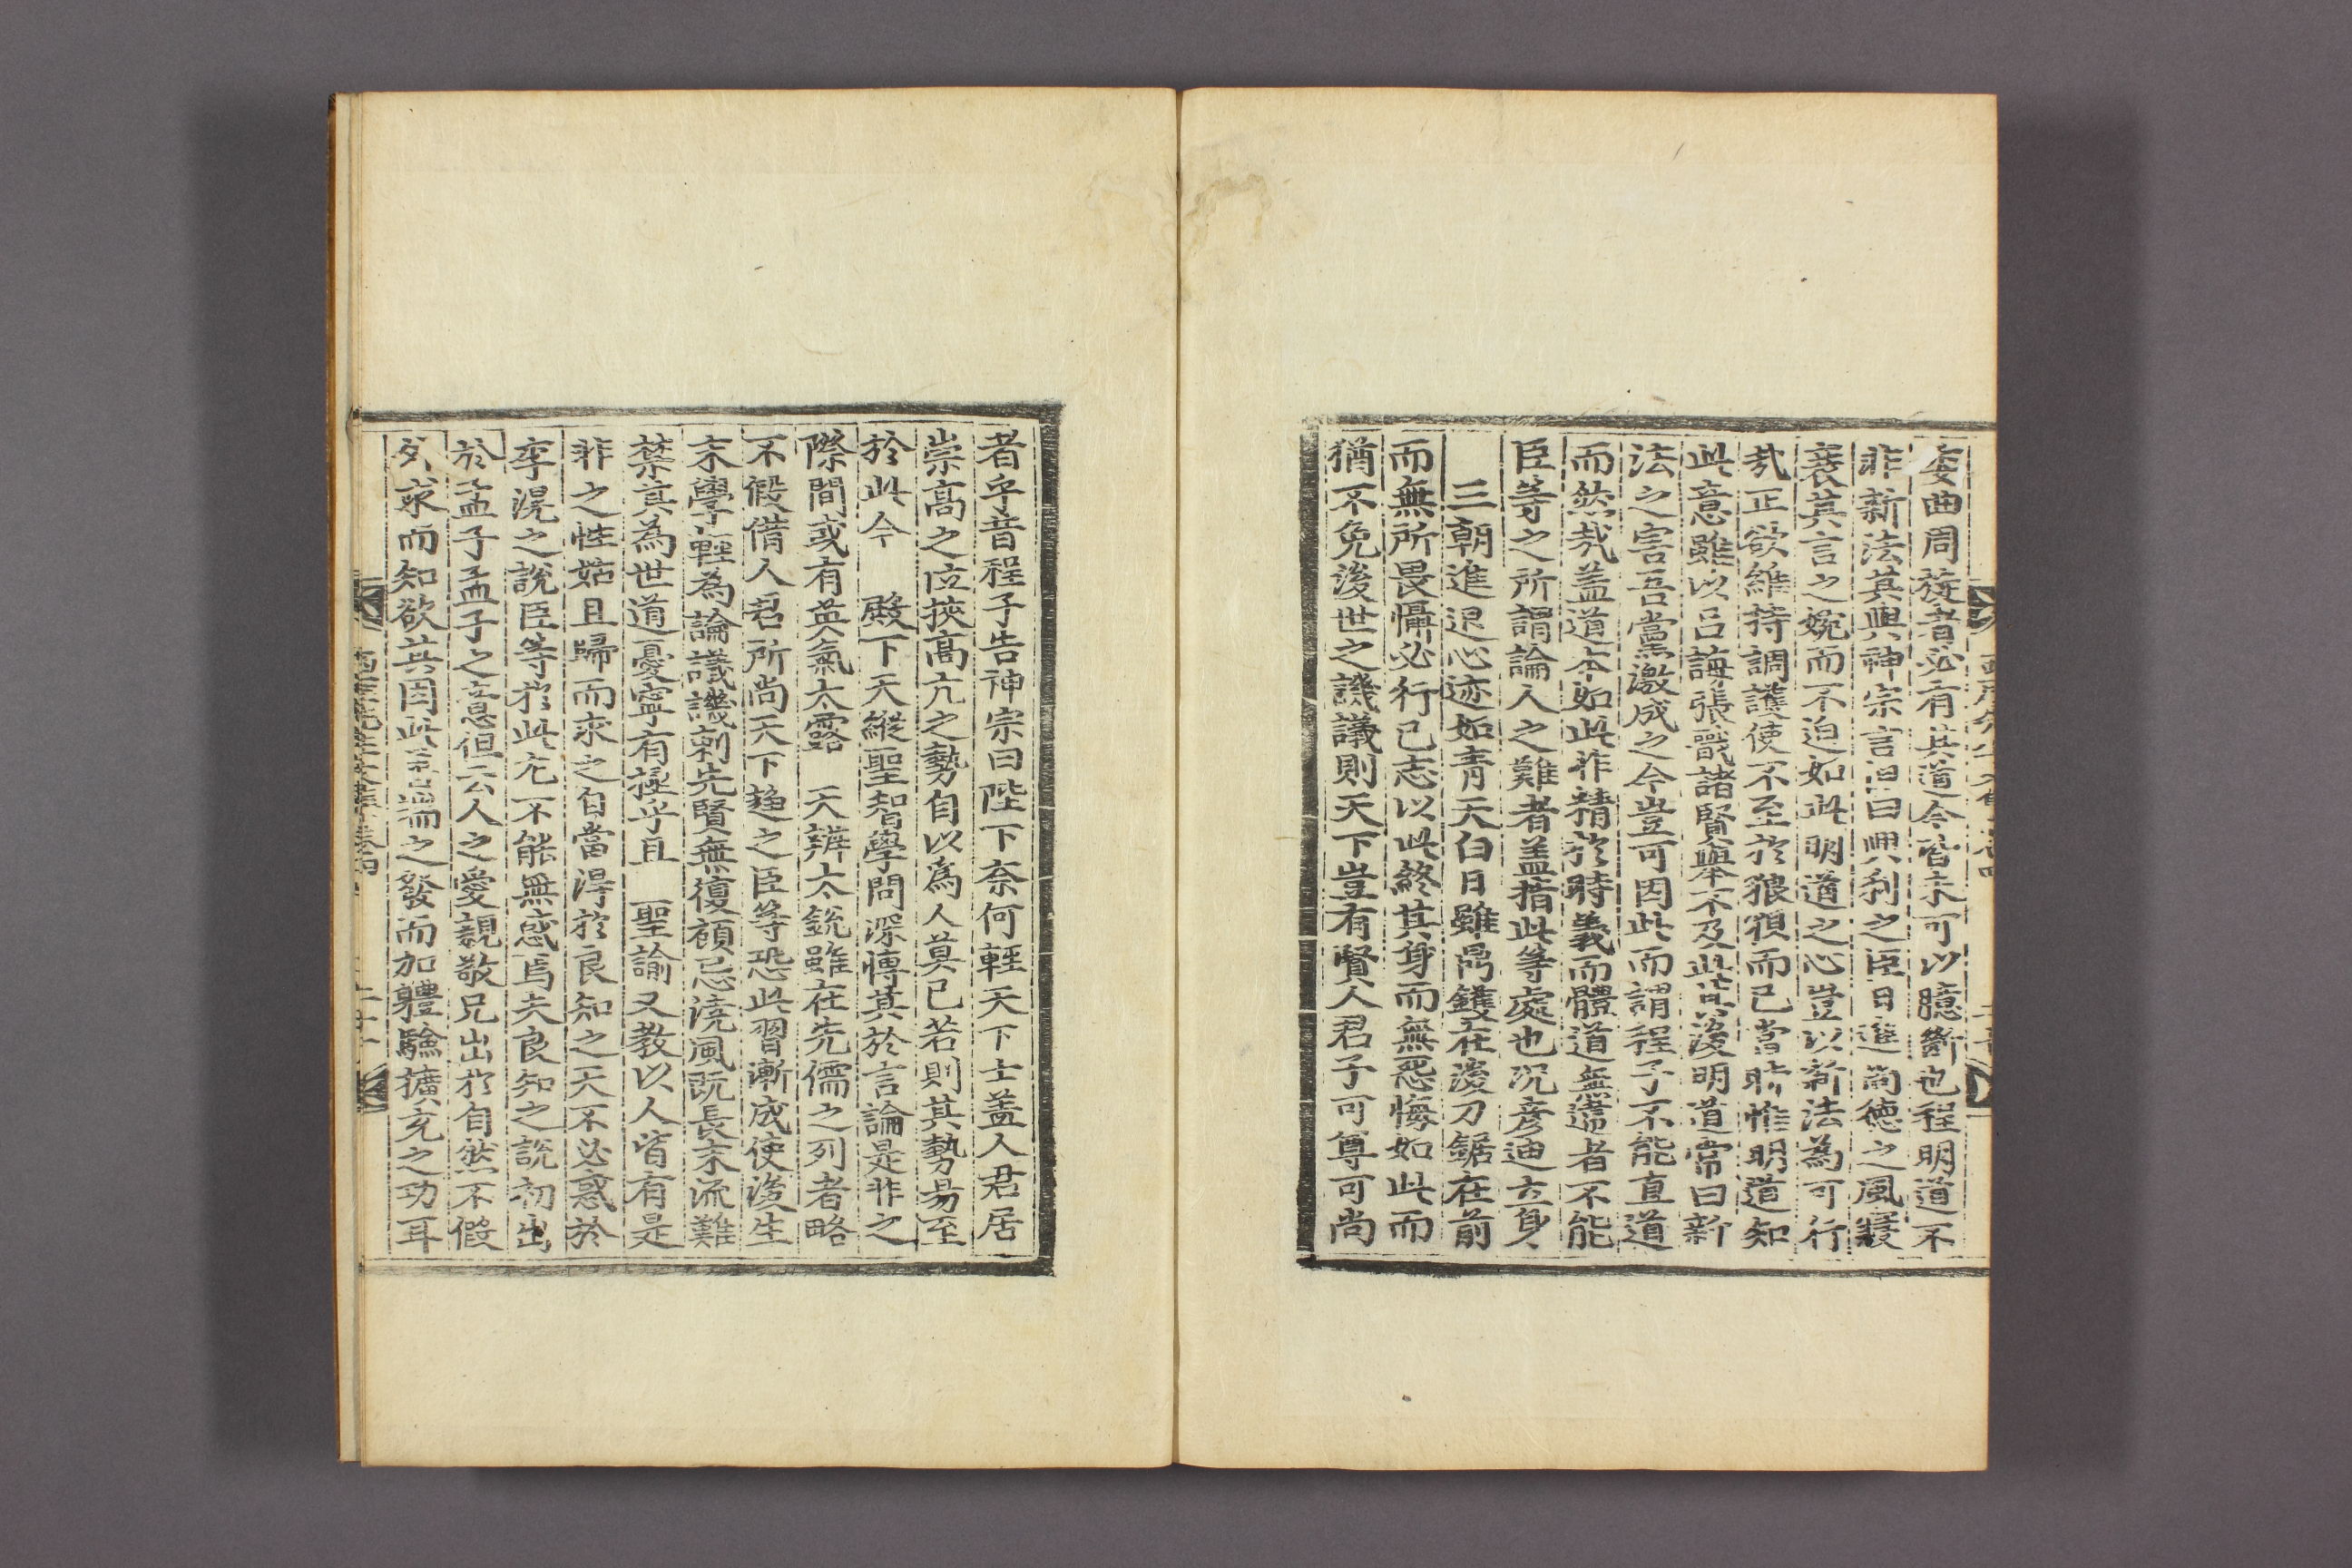 委曲周旋者必有其道今皆未可以臆斷也程明道不
非新法其與神宗言但曰興利之臣日進尚德之風寖
衰其言之婉而不迫如此明道之心豈以新法為可行
㢤正欲維持調護使不至於狼狽而已當時惟明道知
此意雖以呂誨張戩諸賢舉不及此其後明道常曰新
法之害吾黨激成之今豈可因此而謂程子不能直道
而然㢤盖道本如此非精於時義而體道無違者不能
臣等之所謂論人之難者盖指此等處也况彦迪立身
三朝進退心迹如青天白日雖鼎鑊在後刀鋸在前
而無所畏懾必行己志以此終其身而無怨悔如此而
猶不免後世之譏議則天下豈有賢人君子可尊可尚
者乎昔程子告神宗曰陛下奈何輕天下士盖人君居
崇高之位挾高亢之勢自以爲人莫己若則其勢易至
於此今　殿下天縱聖智學問深博其於言論是非之
際間或有英氣太露　天辨太銳雖在先儒之列者略
不假借人君所尚天下趍之臣等恐此習漸成使後生
末學輕為論議譏刺先賢無復顧忌澆風既長末流難
禁其為世道憂寧有極乎且　聖諭又教以人皆有是
非之性姑且歸而求之自當得於良知之天不必惑於
李滉之說臣等於此尤不能無惑焉夫良知之說初出
於孟子孟子之意但云人之愛親敬兄出於自然不假
外求而知欲其因此善端之發而加體驗擴充之功耳